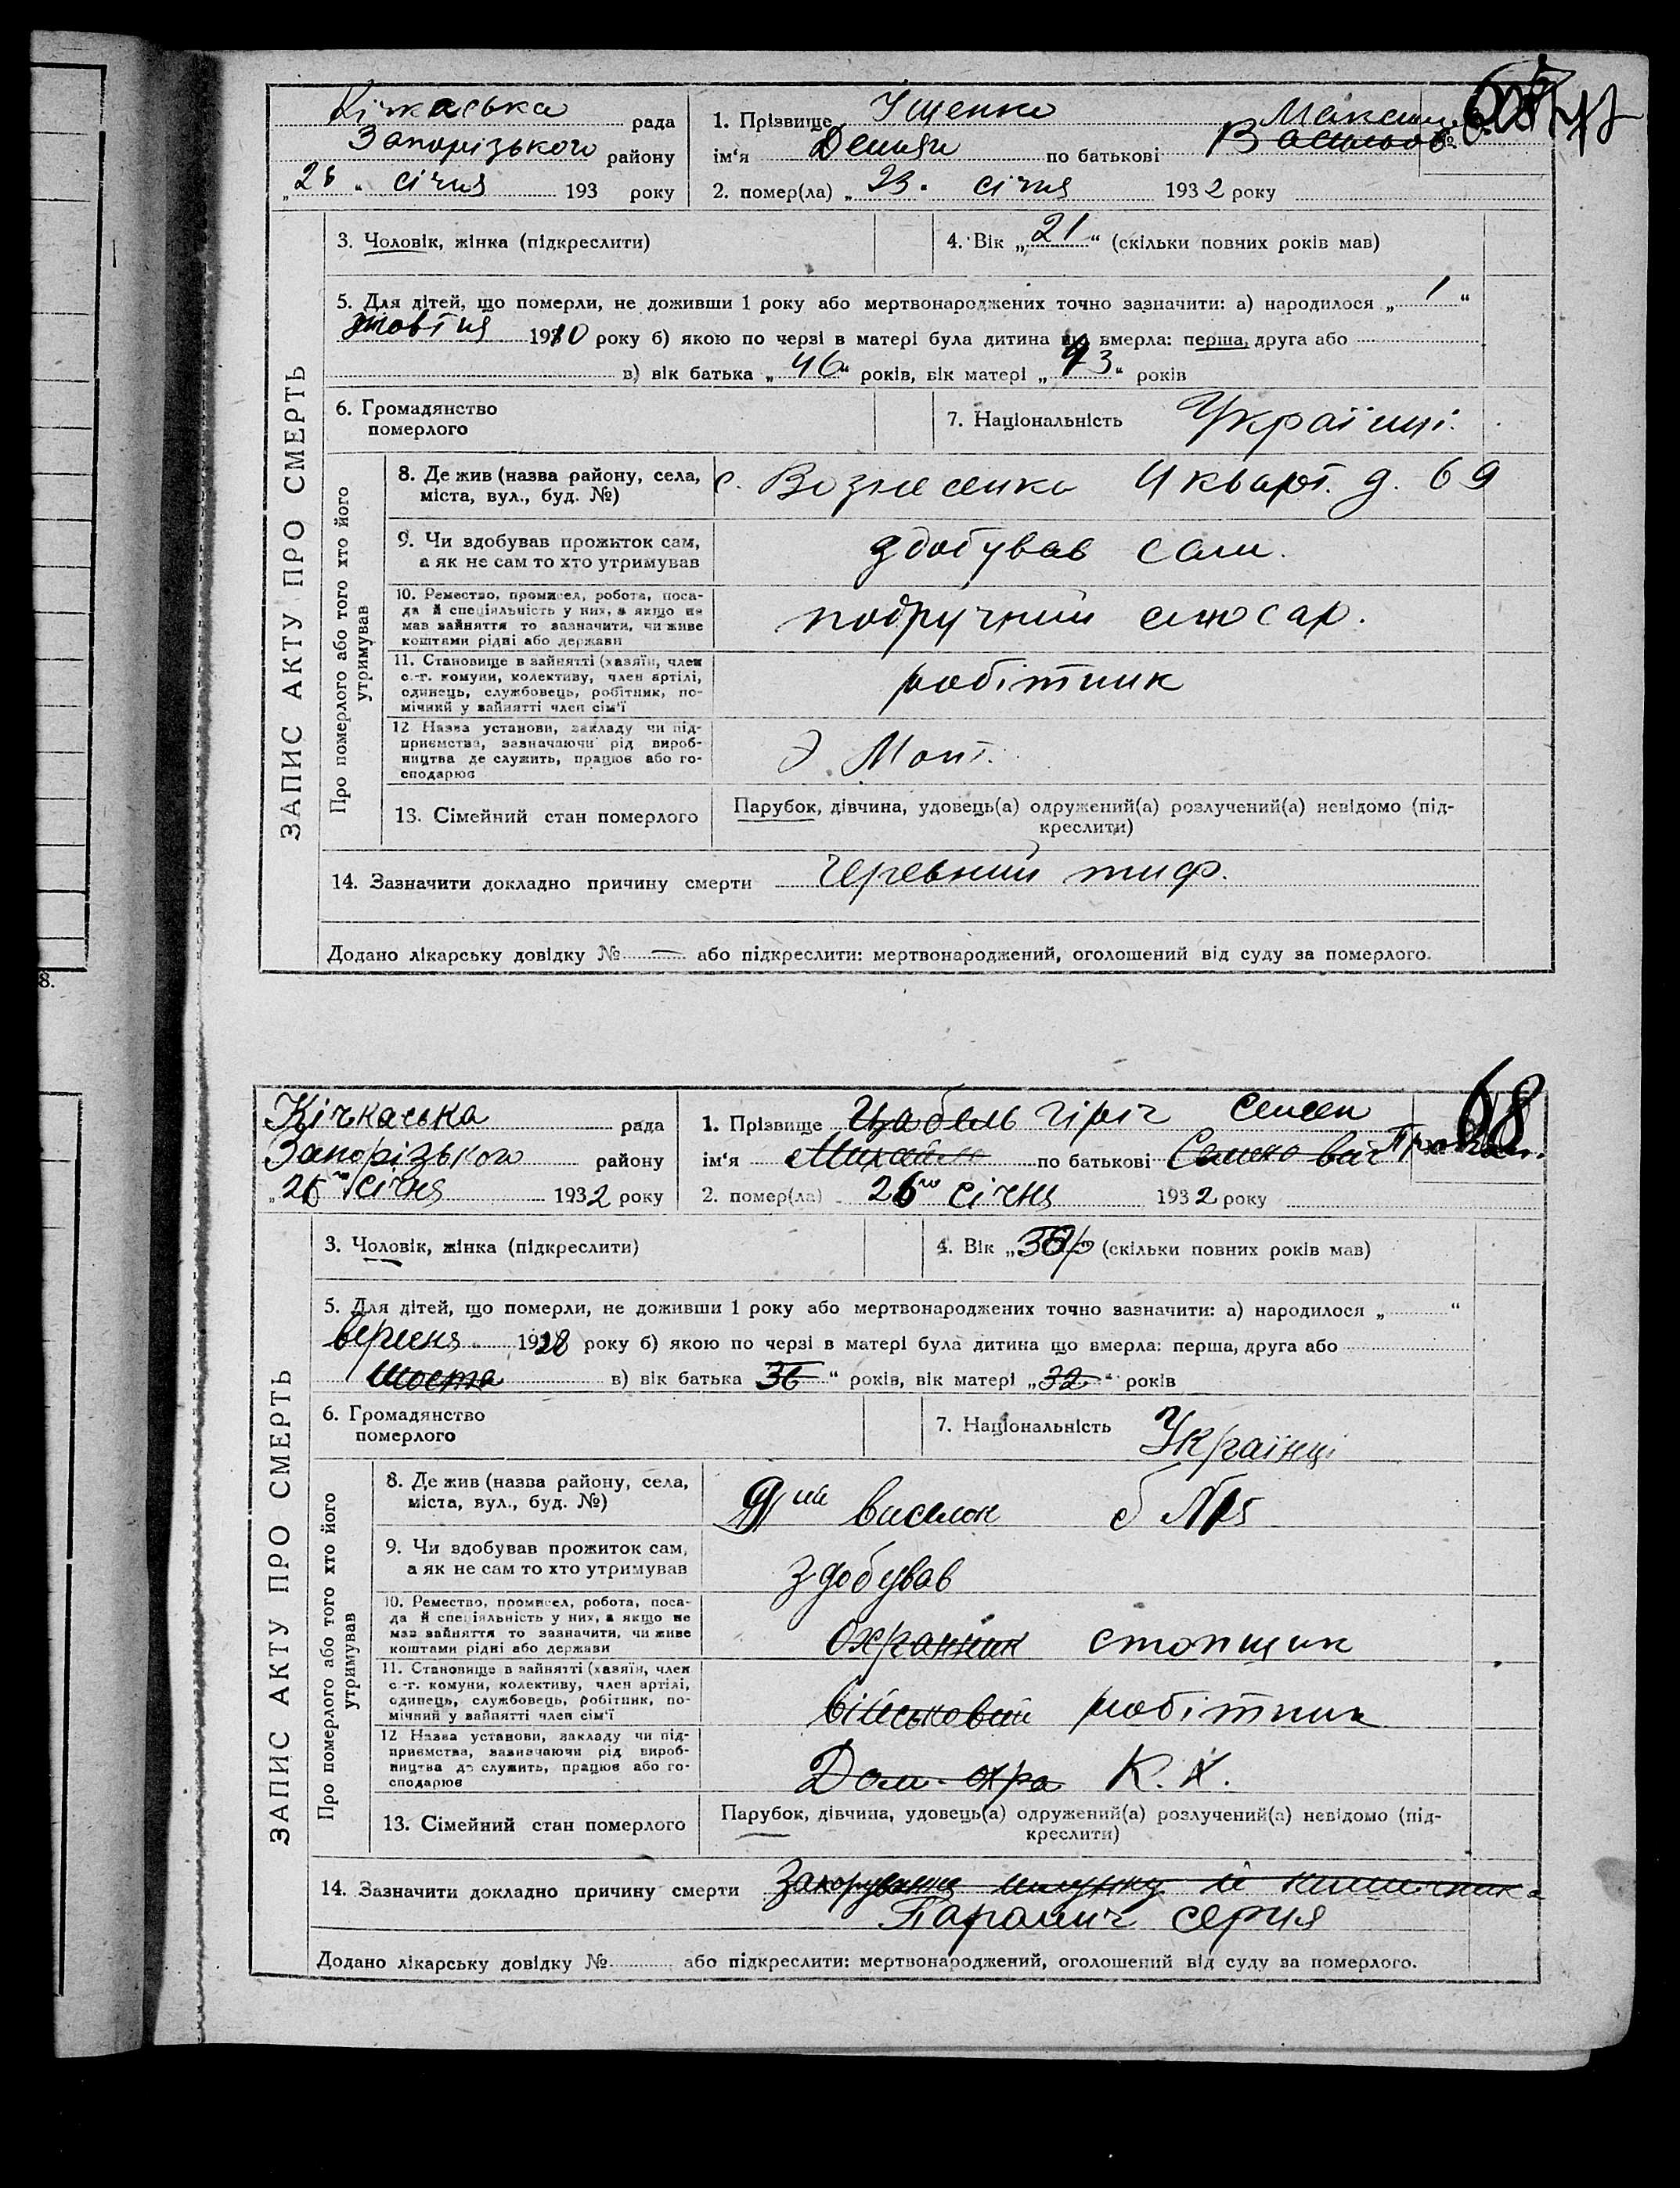 Кічкаська рада
Запорізького району
„28“ січня 193 року
1. Прізвище Іщенко Максим.
ім‘я Денис по батькові Васильов.
2. помер(ла) „23“ січня 1932 року
ЗАПИС АКТУ ПРО СМЕРТЬ
3. Чоловік, жінка (підкреслити)
4. Вік „21“ (скільки повних років мав)
5. Для дітей, що померли, не доживши 1 року або мертвонароджених точно зазначити: а) народилося „1“
жовтня 1910 року б) якою по черзі в матері була дитина що вмерла: перша, друга або
в) вік батька „46“ років, вік матері „43“ років
6. Громадянство
померлого
7. Національність Українці.
Про померлого або того хто його
утримував
8. Де жив (назва району, села,
міста, вул., буд. №)
с. Вознесенка 4 кварт. д. 69
9. Чи здобував прожиток сам,
а як не сам то хто утримував
здобував сам.
10. Ремество, промисел, робота, поса-
да й спеціяльність у них, а якщо не
мав зайняття то зазначити, чи живе
коштами рідні або держави
подручний слюсар.
11. Становище в зайнятті (хазяїн, член
с.-г. комуни, колективу, член артілі,
одинець, службовець, робітник, по-
мічний у зайнятті член сім‘ї
робітник
12 Назва установи, закладу чи під-
приємства, зазначаючи рід вироб-
ництва де служить, працює або го-
сподарює
Монт.
13. Сімейний стан померлого
Парубок, дівчина, удовець(а) одружений(а) розлучений(а) невідомо (під-
креслити)
14. Зазначити докладно причину смерти черевний тиф.
Додано лікарську довідку № — або підкреслити: мертвонароджений, оголошений від суду за померлого.
68
Кічкаська рада
Запорізького району
„26го січня 1932 року
1. Прізвище Цабель Гіріч Семен
ім‘я Михайло по батькові
2. помер(ла) 26го січня 1932 року
ЗАПИС АКТУ ПРО СМЕРТЬ
3. Чоловік, жінка (підкреслити)
4. Вік „ “ (скільки повних років мав)
5. Для дітей, що померли, не доживши 1 року або мертвонароджених точно зазначити: а) народилося „ “
вересня 19 року б) якою по черзі в матері була дитина що вмерла: перша, друга або
шоста в) вік батька 36“ років, вік матері „32“ років
6. Громадянство
померлого
7. Національність Українці
Про померлого або того хто його
утримував
8. Де жив (назва району, села,
міста, вул., буд. №)
ий виселок б №5
9. Чи здобував прожиток сам,
а як не сам то хто утримував
здобував
10. Ремество, промисел, робота, поса-
да й спеціяльність у них, а якщо не
мав зайняття то зазначити, чи живе
коштами рідні або держави
Охранник стопщик
11. Становище в зайнятті (хазяїн, член
с.-г. комуни, колективу, член артілі,
одинець, службовець, робітник, по-
мічний у зайнятті член сім‘ї
військовий робітник
12 Назва установи, закладу чи під-
приємства, зазначаючи рід вироб-
ництва де служить, працює або го-
сподарює
К. Х.
13. Сімейний стан померлого
Парубок, дівчина, удовець(а) одружений(а) розлучений(а) невідомо (під-
креслити)
14. Зазначити докладно причину смерти Захорування шлунку й кишечника
Параліч серця
Додано лікарську довідку № або підкреслити: мертвонароджений, оголошений від суду за померлого.
8.